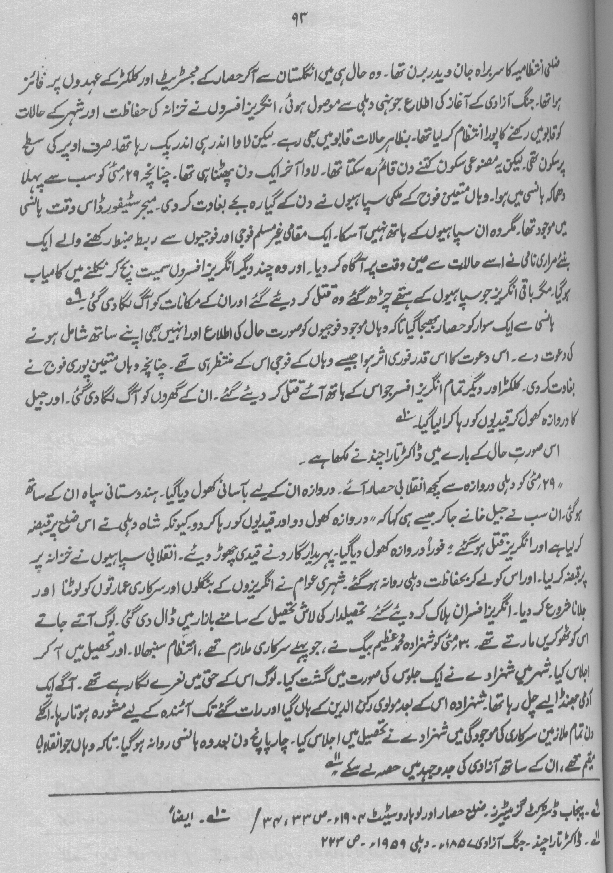 ۹۳
ضلعی انتظامیہ کا سربراہ جان ویدربرن تھا۔ وہ حال ہی میں انگلستان سے آکر حصار کے مجسٹریٹ اور کلکٹر کے عہدوں پر فائز
ہوا تھا۔ جنگ آزادی کے آغاز کی اطلاع جونہی دہلی سے موصول ہوئی، انگریز افسروں نے خزانہ کی حفاظت اور شہر کے حالات
کو قابو میں رکھنے کا پورا انتظام کر لیا تھا۔ بظاہر حالات قابو میں بھی رہے۔ لیکن لاوا اندر ہی اندر پک رہا تھا۔ صرف اوپر کی سطح
پر سکون تھی۔ لیکن یہ مصنوعی سکون کتنے دن قائم رہ سکتا تھا۔ لاوا آخر ایک دن پھٹنا ہی تھا۔ چنانچہ ۲۹ مئی کو سب سے پہلا
دھماکہ ہانسی میں ہوا۔ وہاں متعین فوج کے ملکی سپاہیوں نے دن کے گیارہ بجے بغاوت کر دی۔ میجر سٹیفورڈ اس وقت ہانسی
میں موجود تھا۔ مگر وہ ان سپاہیوں کے ہاتھ نہیں آسکا۔ ایک مقامی غیر مسلم فوجی اور فوجیوں سے ربط ضبط رکھنے والے ایک
بنئے مراری نامی نے اسے حالات سے عین وقت پر آگاہ کر دیا۔ اور وہ چند دیگر انگریز افسروں سمیت بچ کر نکلنے میں کامیاب
ہو گیا۔ مگر باقی انگریز جو سپاہیوں کے ہتھے چڑھ گئے وہ قتل کر دیئے گئے اور ان کے مکانات کو آگ لگا دی گئی۔ ۹؎
ہانسی سے ایک سوار کو حصار بھیجا گیا تاکہ وہاں موجود فوجیوں کو صورت حال کی اطلاع اور انہیں بھی اپنے ساتھ شامل ہونے
کی دعوت دے۔ اس دعوت کا اس قدر فوری اثر ہوا جیسے وہاں کے فوجی اس کے منتظر ہی تھے۔ چنانچہ وہاں متعین پوری فوج نے
بغاوت کر دی۔ کلکٹر اور دیگر تمام انگریز افسر جو اس کے ہاتھ آئے قتل کر دیئے گئے۔ ان کے گھروں کو آگ لگا دی گئی۔ اور جیل
کا دروازہ کھول کر قیدیوں کو رہا کرا لیا گیا۔ ۱۰؎
اس صورت حال کے بارے میں ڈاکٹر تارا چند نے لکھا ہے۔
"۲۹ مئی کو دہلی دروازہ سے کچھ انقلابی حصار آئے۔ دروازہ ان کے لیے بآسانی کھول دیا گیا۔ ہندوستانی سپاہ ان کے ساتھ
ہو گئی۔ ان سب نے جیل خانے جا کر جیسے ہی کہا کہ "دروازہ کھول دو اور قیدیوں کو رہا کر دو۔ کیونکہ شاہ دہلی نے اس ضلع پر قبضہ
کر لیا ہے اور انگریز قتل ہو گئے" فوراً دروازہ کھول دیا گیا۔ پہریدار گارد نے قیدی چھوڑ دیئے۔ انقلابی سپاہیوں نے خزانہ پر
قبضہ کر لیا۔ اور اس کو لے کر بحفاظت دہلی روانہ ہو گئے۔ شہری عوام نے انگریزوں کے بنگلوں اور سرکاری عمارتوں کو لوٹنا اور
جلانا شروع کر دیا۔ انگریز افسران ہلاک کر دیئے گئے۔ تحصیلدار کی لاش تحصیل کے سامنے بازار میں ڈال دی گئی۔ لوگ آتے جاتے
اس کو ٹھوکریں مارتے تھے۔ ۳۰ مئی کو شہزادہ محمد عظیم بیگ نے، جو پہلے سرکاری ملازم تھے، انتظام سنبھالا۔ اور تحصیل میں آکر
اجلاس کیا۔ شہر میں شہزادے نے ایک جلوس کی صورت میں گشت کیا۔ لوگ اس کے حق میں نعرے لگا رہے تھے۔ آگے ایک
آدمی جھنڈا لیے چل رہا تھا۔ شہزادہ اس کے بعد مولوی رکن الدین کے ہاں گیا اور رات گئے تک آئندہ کے لیے مشورہ ہوتا رہا۔ اگلے
دن تمام ملازمین سرکاری کی موجودگی میں شہزادے نے تحصیل میں اجلاس کیا۔ چار پانچ دن بعد وہ ہانسی روانہ ہو گیا۔ تاکہ وہاں جو انقلابی
مقیم تھے، ان کے ساتھ آزادی کی جدوجہد میں حصہ لے سکے۔" ۱۱؎
۹؎۔ پنجاب ڈسٹرکٹ گزیٹیرز۔ ضلع حصار اور لوہارو سٹیٹ ۱۹۰۴ء۔ ص ۳۳، ۳۴ / ۱۰؎۔ ایضاً
۱۱؎۔ ڈاکٹر تارا چند۔ جنگ آزادی ۱۸۵۷ء۔ دہلی ۱۹۵۹ء۔ ص ۲۲۳